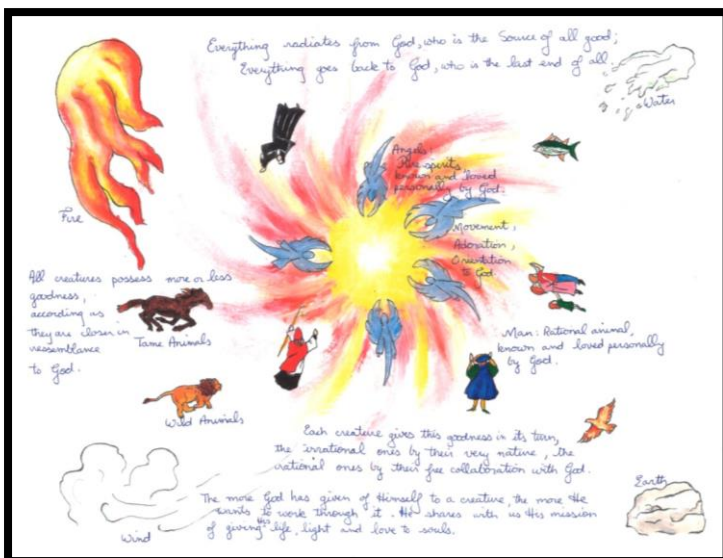 Everything radiates from God, who is the Source of all good;
Everything goes back to God, who is the last end of all.
Water
Fire
Angels:
Pure spirits,
known and loved
personally by God.
Movement,
Adoration,
Orientation
to God.
All creatures possess more or less
goodness,
according as
they are closer in
ressemblance
to God.
Tame Animals
Man: Rational animal,
known and loved personally
by God.
Wild Animals
Each creature gives this goodness in its turn,
the irrational ones by their very nature, the
rational ones by their free collaboration with God.
The more God has given of Himself to a creature, the more He
wants to work through it. He shares with us His mission
of giving this life, light and love to souls.
Wind
Earth